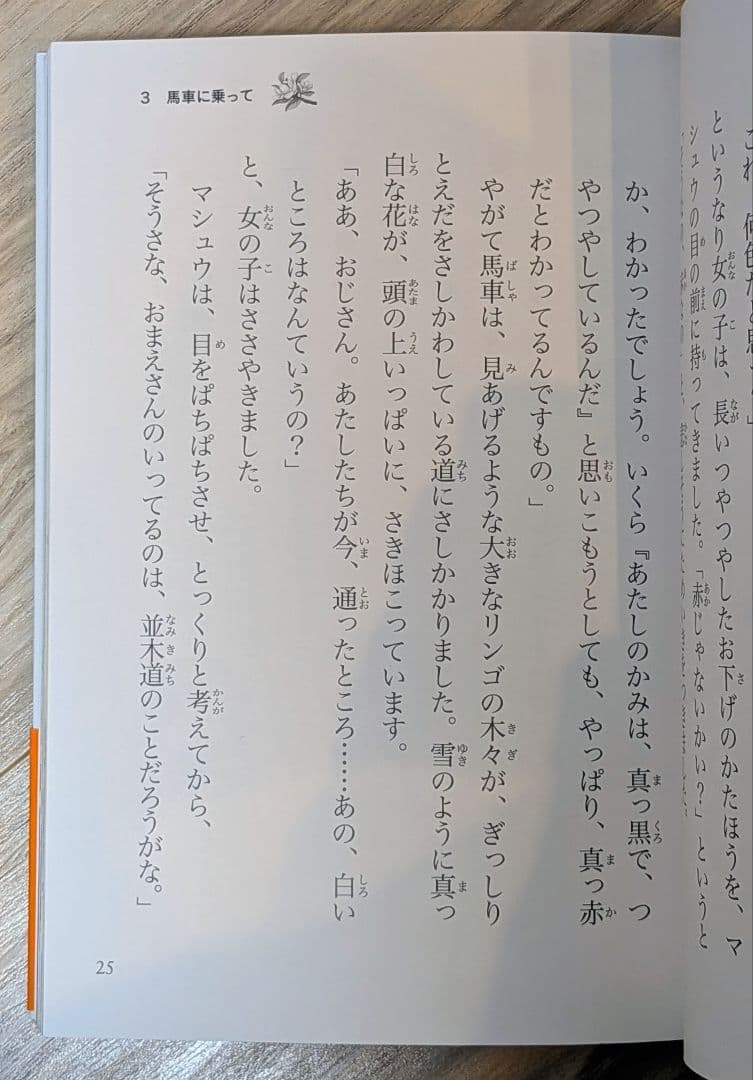 これ、何色だと思う？」
というなり女の子は、長いつやつやしたお下げのかたほうを、マ
シュウの目の前に持ってきました。「赤じゃないかい？」というと
3 馬車に乗って
か、わかったでしょう。いくら『あたしのかみは、真っ黒で、つ
やつやしているんだ』と思いこもうとしても、やっぱり、真っ赤
だとわかってるんですもの。」
やがて馬車は、見あげるような大きなリンゴの木々が、ぎっしり
とえだをさしかわしている道にさしかかりました。雪のように真っ
白な花が、頭の上いっぱいに、さきほこっています。
「ああ、おじさん。あたしたちが今、通ったところ……あの、白い
ところはなんていうの？」
と、女の子はささやきました。
マシュウは、目をぱちぱちさせ、とっくりと考えてから、
「そうさな、おまえさんのいってるのは、並木道のことだろうがな。」
25